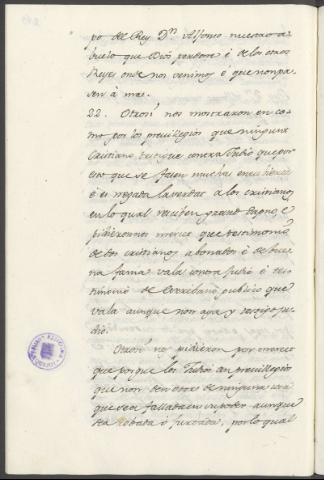 po de Rey Dn. Alfonso nuestro a
buelo que Dios perdone é de los otros
Reyes onde nos venimos é que non pa
sen á mas.
22. Otrosi nos mostraron en co
mo por los previllegios que ninguna
Cristiano testigue contra Judio que por
esto que se facen muchas encubiertas
é es negada la verdat a los cristianos
en lo qual reciben grand dapno, é
pidieronnos merce que testimonio
de dos cristianos abonados é de bue
na fama vala contra judio é tes
timonio de Escribano publico que
vala aunque non aya y testigo ju
dio.
Otrosi nos pidieron por merce
que porque los Judios an previllegios
que non den otores de ninguna cosa
que sea fallada en su poder aunque
sea robada ó furtada, por lo qual